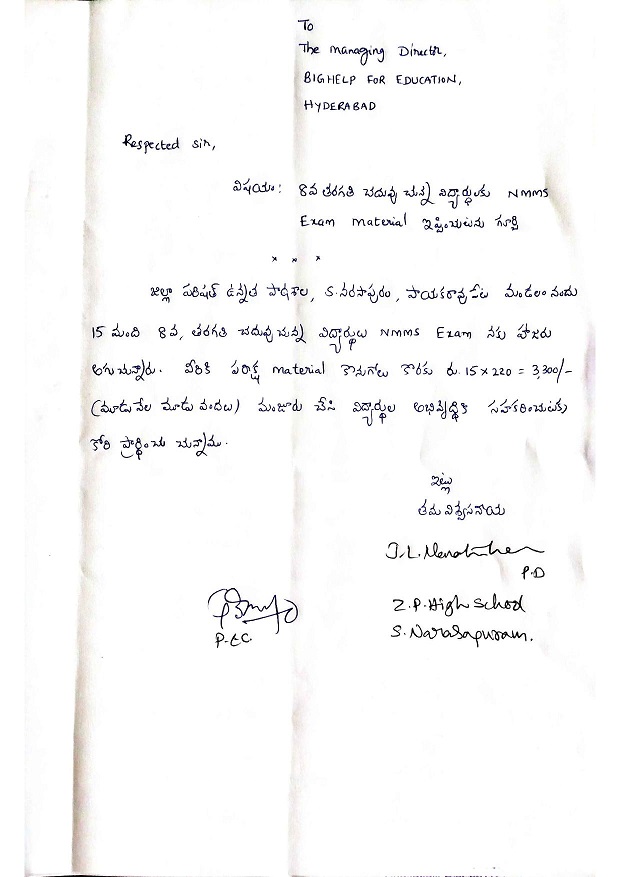 To
The Managing Director,
BIGHELP FOR EDUCATION,
HYDERABAD
Respected sir,
విషయం: 8వ తరగతి చదువు చున్న విద్యార్థులకు NMMS
Exam Material ఇప్పించుటను గూర్చి
× × ×
జిల్లా పరిషత్ ఉన్నత పాఠశాల, S.నరసాపురం, పాయకరావుపేట మండలం నందు
15 మంది 8వ, తరగతి చదువుచున్న విద్యార్థులు NMMS Exam నకు హాజరు
అగుచున్నారు. వీరికి పరీక్ష material కొనుగోలు కొరకు రు. 15 × 220 = 3,300/-
(మూడు వేల మూడు వందలు) మంజూరు చేసి విద్యార్థుల అభివృద్ధికి సహకరించుటకు
కోరి ప్రార్థించు చున్నాము.
ఇట్లు
తమ విశ్వసనీయ
P.D
Z.P. High School
S. Narasapuram.